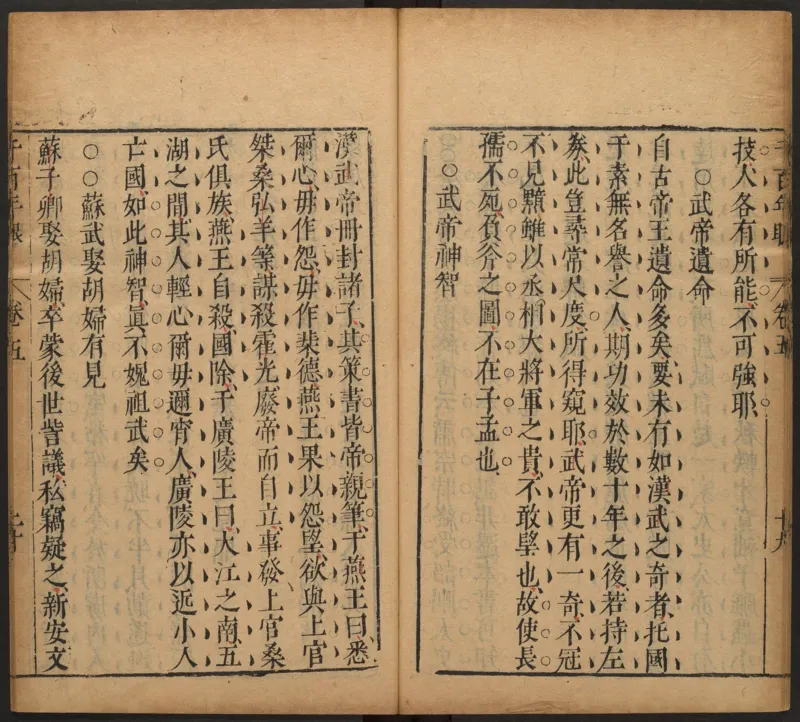 技人各有所能不可強耶
○武帝遺命
自古帝王遺命多矣要未有如漢武之奇者托國
于素無名譽之人期功效於數十年之後若持左
券此豈尋常尺度所得窺耶武帝更有一奇不冠
不見黯雖以丞相大將軍之貴不敢望也故使長
孺不死負斧之圖不在子孟也
○武帝神智
漢武帝冊封諸子其策書皆帝親筆于燕王曰悉
爾心毋作怨毋作棐德燕王果以怨望欲與上官
桀桑弘羊等謀殺霍光廢帝而自立事發上官桑
氏俱族燕王自殺國除于廣陵王曰大江之南五
湖之間其人輕心爾毋邇宵人廣陵亦以近小人
亡國如此神智真不媿祖武矣
○○蘇武娶胡婦有見
蘇子卿娶胡婦卒蒙後世訾議私竊疑之新安文
千百年眼 卷五